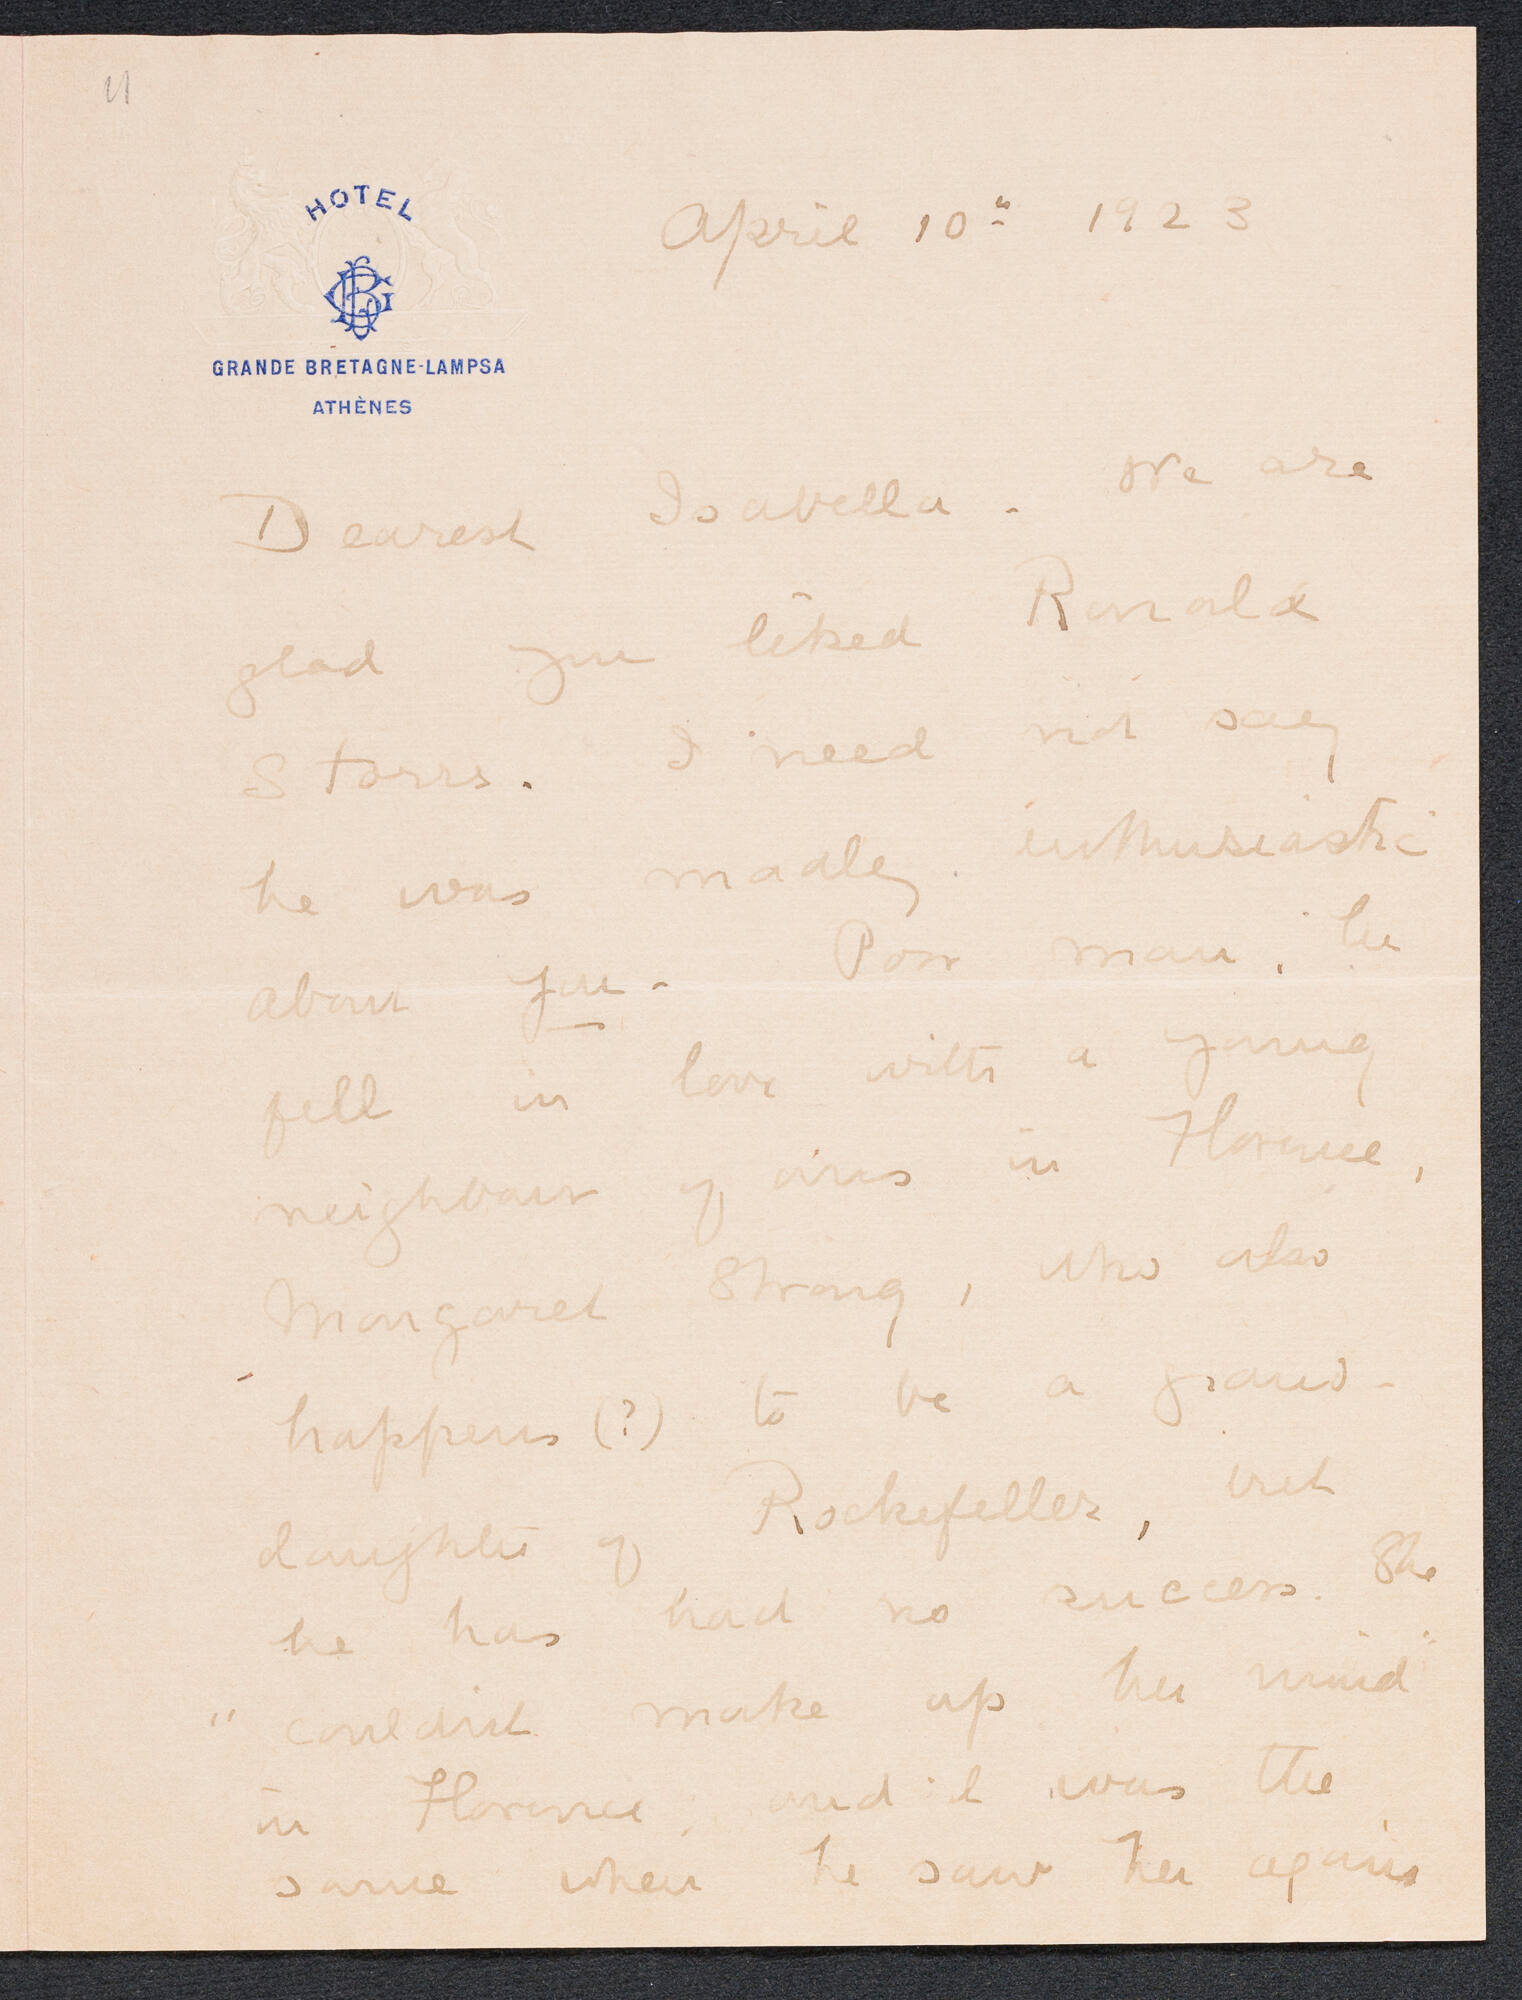 11
HOTEL
GB
GRANDE BRETAGNE-LAMPSA
ATHÈNES
April 10th 1923
Dearest Isabella. We are
glad you liked Ronald
Storrs. I need not say
he was madly enthusiastic
about you. Poor man, he
fell in love with a young
neighbour of ours in Florence,
Margaret Strong, who also
happens (?) to be a grand-
daughter of Rockefeller, but
he has had no success. She
"couldn't make up her mind"
in Florence, and it was the
same when he saw her again